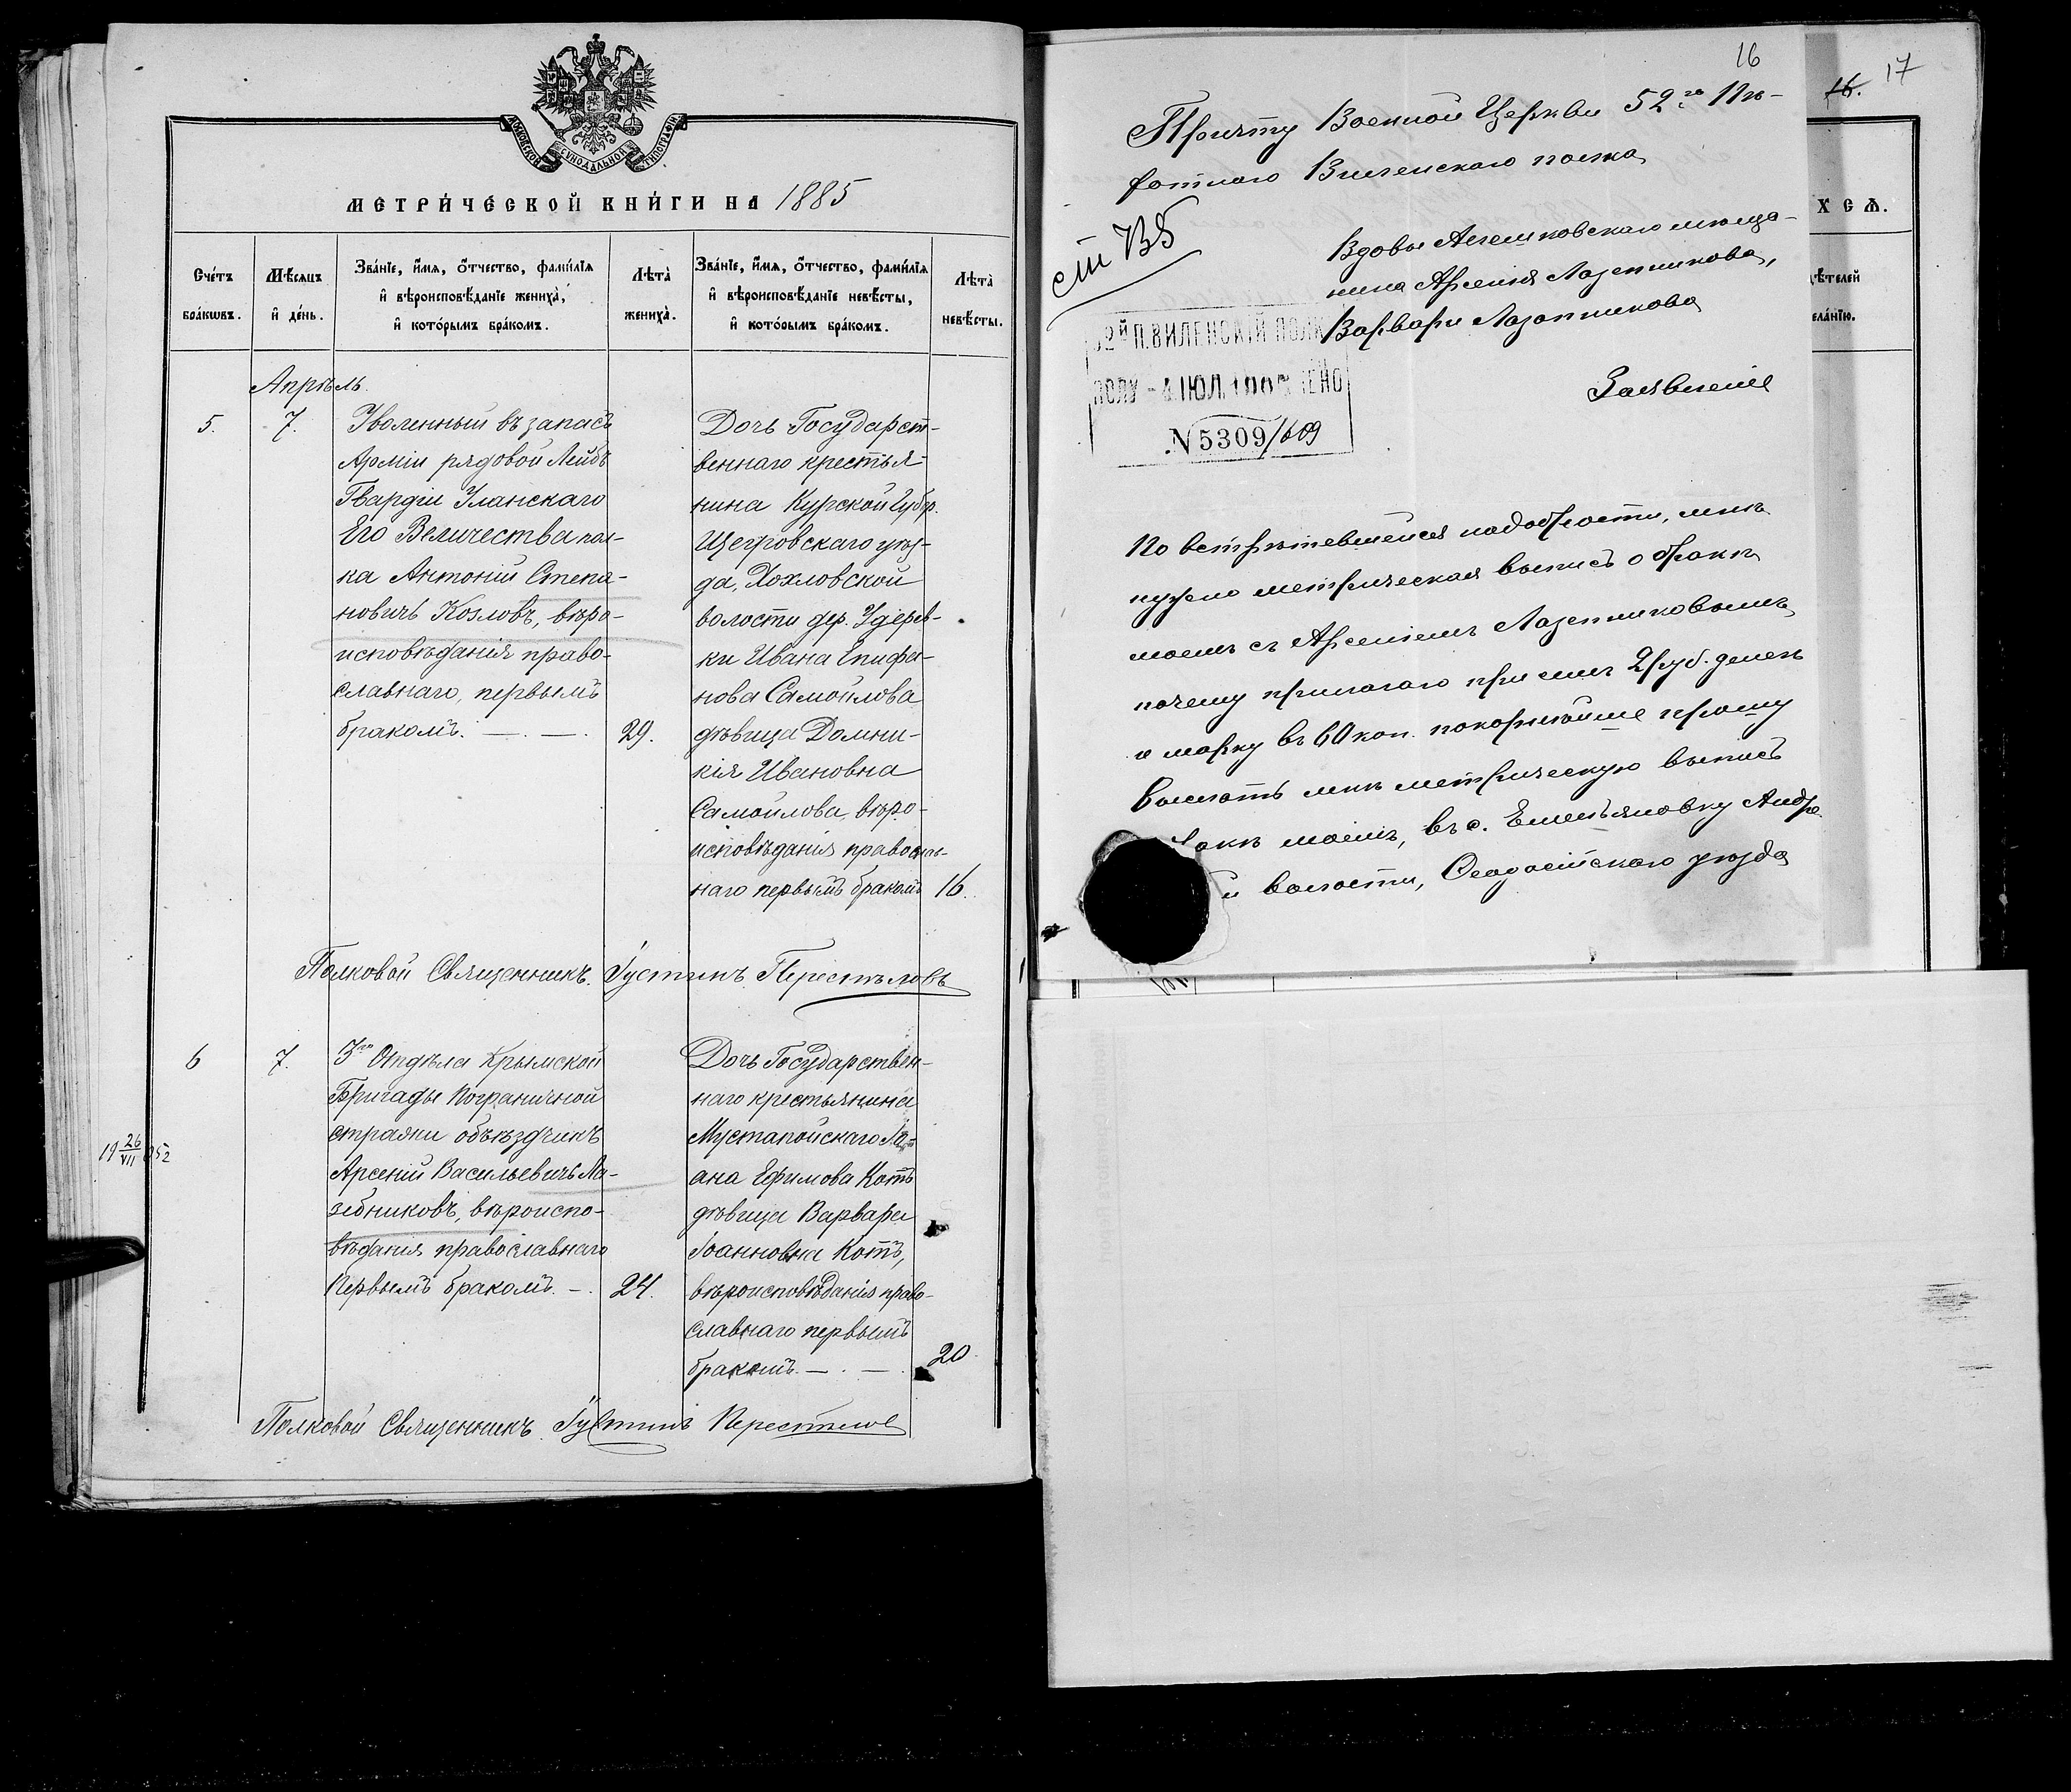 МОСКОВСКОЙ СУНОДАЛЬНОЙ ТИПОГРАФІИ
МЕТРИ́ЧЕСКОЙ КНИ́ГИ НА 1885
Сче́тъ бра́кωвъ.
Мѣ́сяцъ и҆ де́нь.
Зва́нїе, и҆́мя, ѻ҆́тчество, фамилїя и҆ вѣроисповѣ́данїе жениха̀, и҆ кото́рымъ бра́комъ.
Лѣта̀ жениха̀.
Зва́нїе, и҆́мя, ѻ҆́тчество, фамилїя и҆ вѣроисповѣ́данїе невѣ́сты, и҆ кото́рымъ бра́комъ.
Лѣта̀ невѣ́сты.
Апрѣль.
5.
7.
Уволенный въ запасъ
Арміи рядовой Лейбъ
Гвардіи Уланскаго
Его Величества пол-
ка Антоній Степа-
новичъ Козловъ, вѣро-
исповѣданія право-
славнаго, первымъ
бракомъ. — . — .
29.
Дочь Государст-
веннаго крестья-
нина Курской Губер.
Щегровскаго уѣз-
да, Хохловской
волости дер. Удерев-
ки Ивана Епифа-
нова Самойлова
дѣвица Домни-
кія Ивановна
Самойлова, вѣро-
исповѣданія православ-
наго первымъ бракомъ
16.
Полковой Священникъ Іустинъ Перестѣловъ
6
7.
3го Отдѣла Крымской
Бригады Пограничной
стражи объѣздчикъ
Арсеній Васильевичъ Ла-
зебниковъ, вѣроиспо-
вѣданія православнаго
первымъ бракомъ. — .
24.
Дочь Государствен-
наго крестьянина
Мустапойскаго Іо-
ана Ефимова Котъ
дѣвица Варвара
Іоанновна Котъ,
вѣроисповѣданія право-
славнаго первымъ
бракомъ. — . — .
20
19 26/VII 52
Полковой Священникъ Іустинъ Перестѣловъ
16
Причту Военной Церкви 52го Пѣ-
хотнаго Виленскаго полка
Вдовы Алешковскаго мѣща-
нина Арсенія Лазепникова,
Варвары Лазепникова
Заявленіе
52й П. ВИЛЕНСКІЙ ПОЛК
ПОЛУ - 4 ІЮЛ. ЧЕНО
N 5309/609
По встрѣтевшейся надобности, мнѣ
нужно метрическая выпись о бракѣ
моемъ съ Арсеніемъ Лазепниковымъ,
почему прилагаю при семъ 2 руб. денегъ
и марку въ 60 коп. покорнѣйше прошу
выслать мнѣ метрическую выпись
бракѣ моемъ, въ с. Емельяновку Андре
волости, Феодосійскаго уѣзда
16. 17
ХСѦ.
дѣтелей
еланїю.